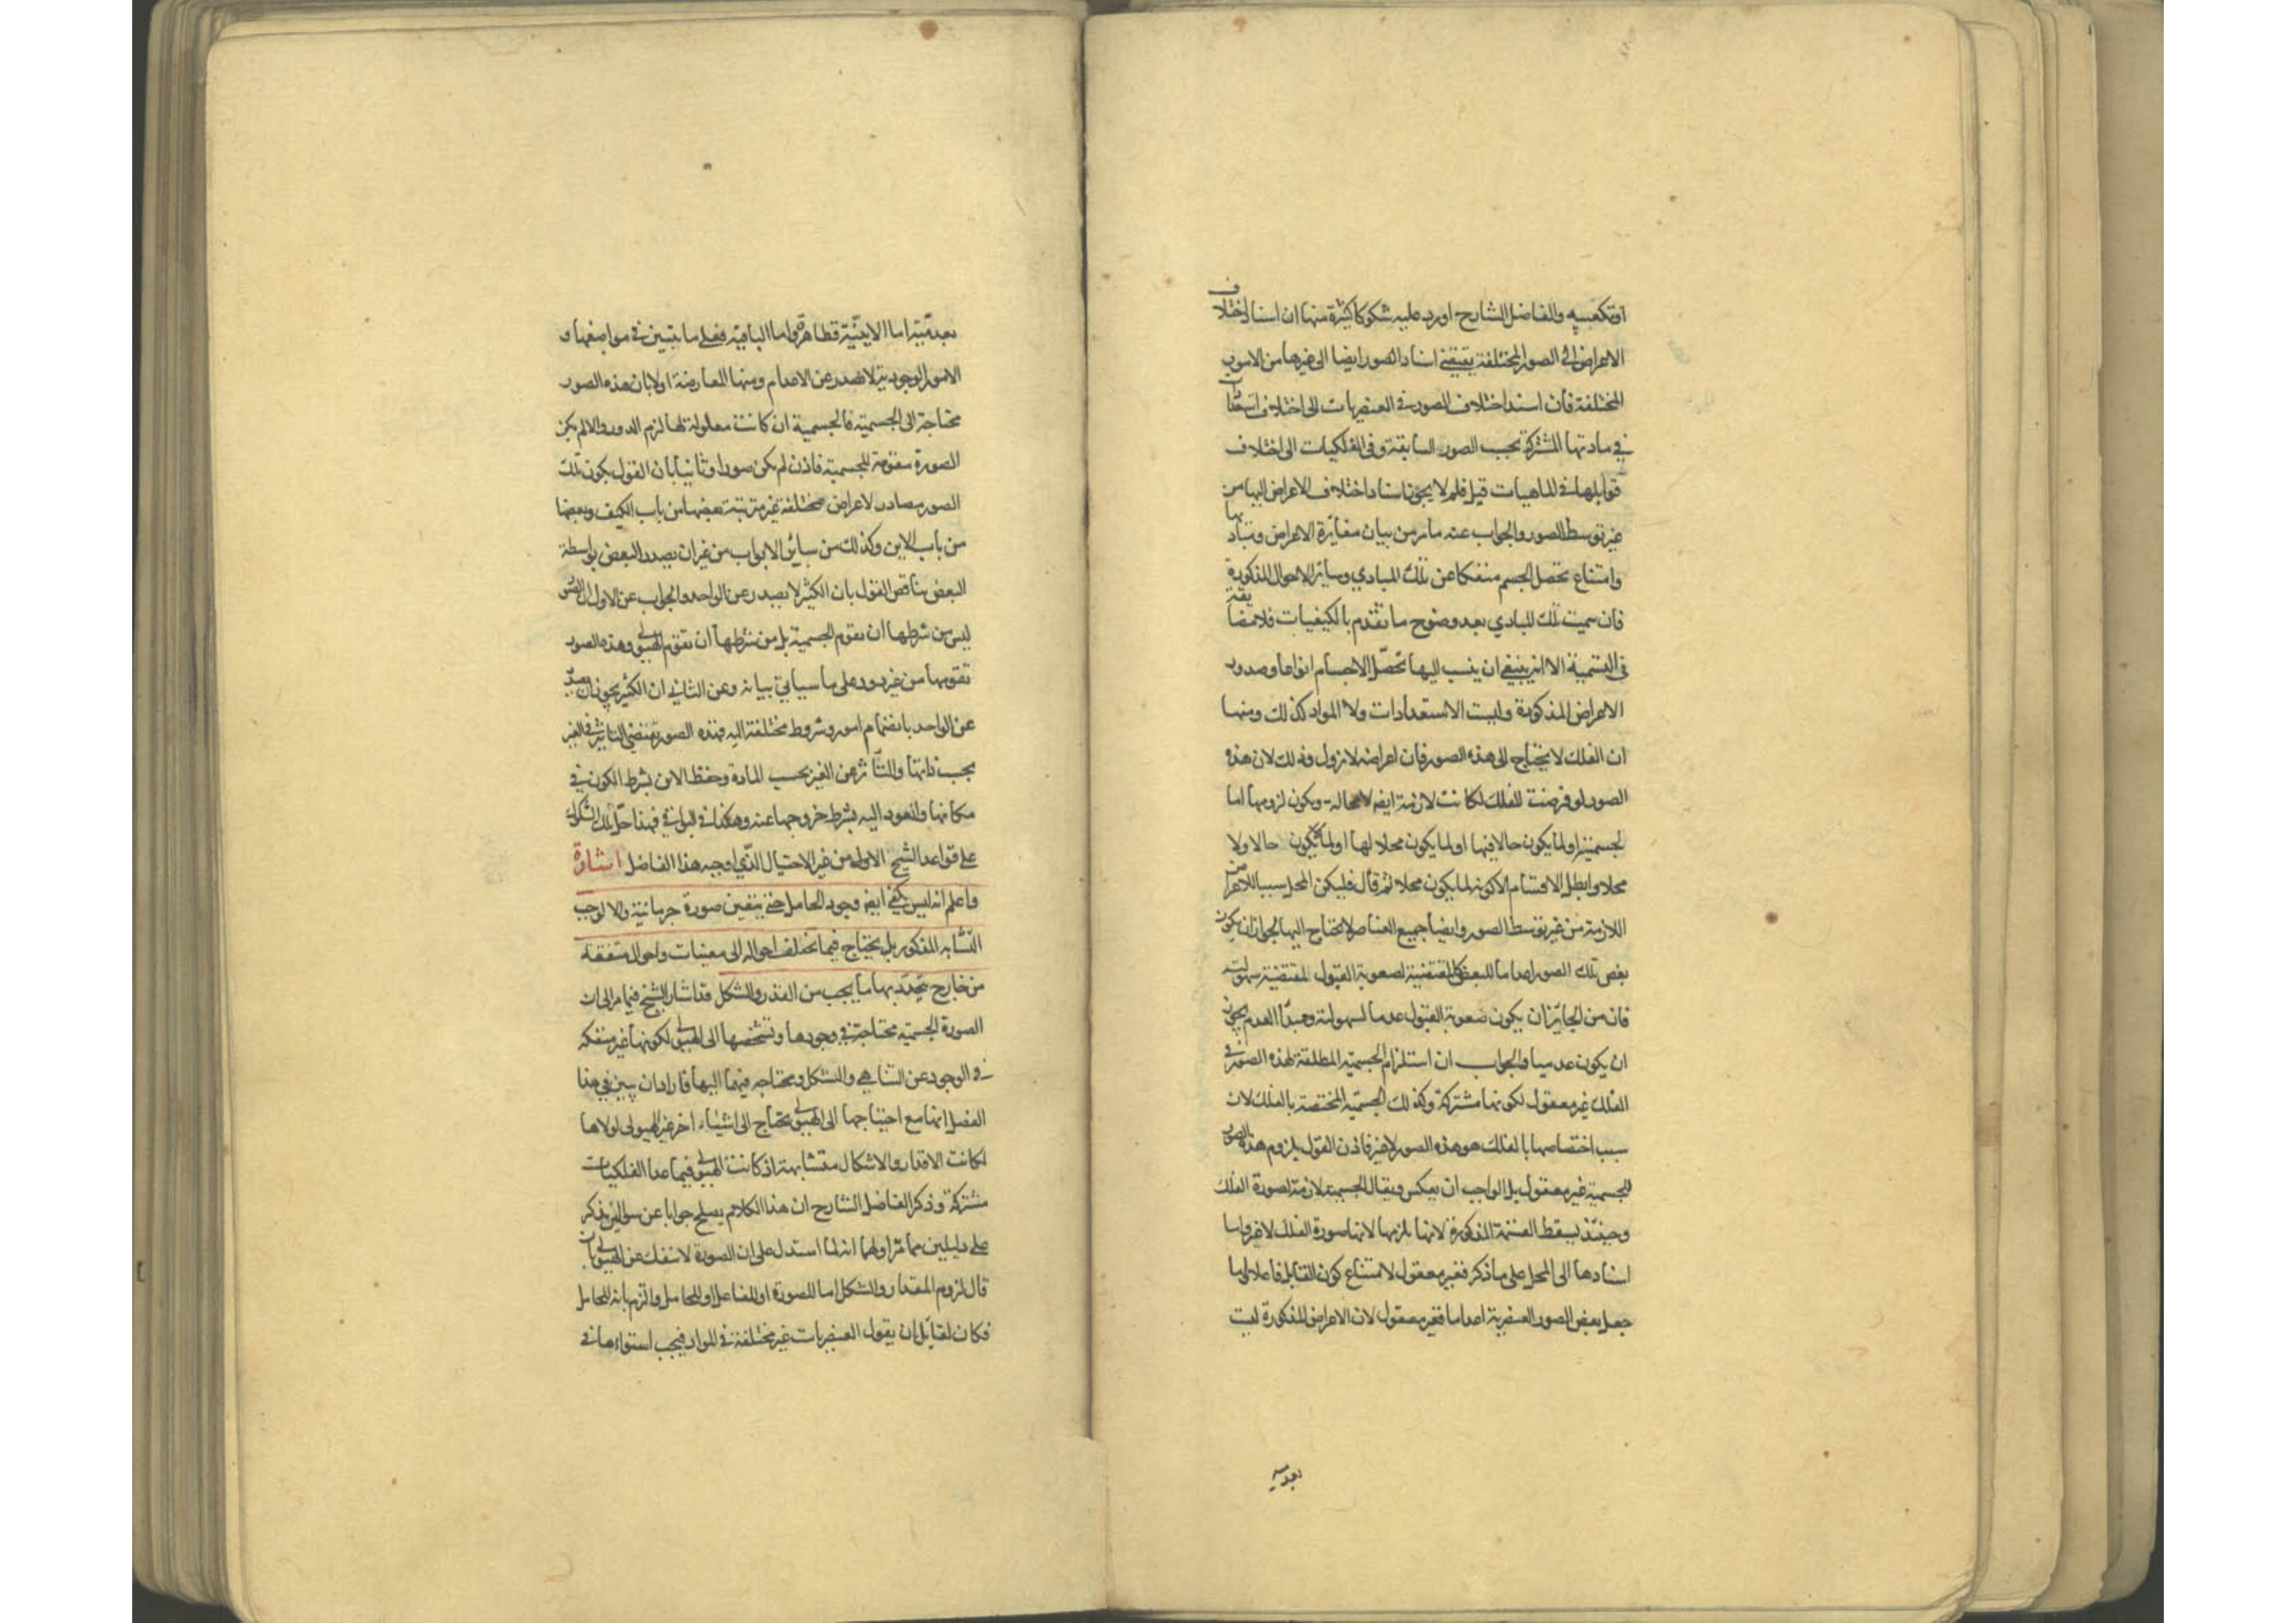 او تكعيبه والفاضل الشارح اورد عليه شكوكا كثيرة منها ان اسناد اختلاف
الاعراض الى الصور المختلفة يقتضى اسناد الصور ايضا الى غيرها من الامور
المختلفة فان اسند اختلاف الصور فى العنصريات الى اختلاف استعدادات
فى مادتها المشتركة بحسب الصور السابقة وفى الفلكيات الى اختلاف
قوابلها فى الماهيات قيل فلم لا يجوز اسناد اختلاف الاعراض اليها من
غير توسط الصور والجواب عنه ما مر من بيان مغايرة الاعراض ومباديها
وامتناع تحصل الجسم منفكا عن تلك المبادي وساير الاحوال المذكورة
فان سميت تلك المبادي بعد وضوح ما تقدم بالكيفيات فلا مضايقة
فى التسمية الا انه ينبغي ان ينسب اليها تحصّل الاجسام انواعا وصدور
الاعراض المذكورة وليست الاستعدادات ولا المواد كذلك ومنها
ان الفلك لا يحتاج الى هذه الصور فان اعراضه لا تزول وذلك لان هذه
الصور لو فرضت للفلك لكانت لازمة ايضا لا محالة ويكون لزومها اما
لجسميته او لما يكون حالا فيها او لما يكون محلا لها او لما لا يكون حالا ولا
محلا وابطل الاقسام الا كونه لما يكون محلا ثم قال فليكن المحل سببا للاعراض
اللازمة من غير توسط الصور وايضا جميع العناصر لا تحتاج اليها لجواز ان يكون
بعض تلك الصور اعداما للبعض كالمقتضية لصعوبة القبول للمقتضية سهولته
فان من الجايز ان يكون صعوبة القبول عدما لسهولته ومبدأ العدم يجوز
ان يكون عدميا والجواب ان استلزام الجسميه المطلقة لهذه الصور فى
الفلك غير معقول لكونها مشتركة وكذلك الجسميّه المختصة بالفلك لان
سبب اختصاصها بالفلك هو هذه الصور لا غير فاذن القول بلزوم هذه الصور
للجسمية غير معقول بل الواجب ان يعكس ويقال الجسمية لازمة لصورة الفلك
وحينئذ يسقط القسمة المذكورة لانها تلزمها لانها صورة الفلك لا غير واما
اسنادها الى المحل على ما ذكر فغير معقول لامتناع كون القابل فاعلا واما
جعل بعض الصور العنصرية اعداما فغير معقول لان الاعراض المذكورة ليست
بعدميه
بعدميّة اما الاينيّة فظاهرة واما الباقية فعلى ما تبين فى مواضعها و
الامور الوجودية لا تصدر عن الاعدام ومنها المعارضة اولا بان هذه الصور
محتاجة الى الجسمية فالجسمية ان كانت معلولة لها لزم الدور والا لم يكن
الصورة مقومة للجسمية فاذن لم يكن صورا وثانيا بان القول بكون تلك
الصور مصادر لاعراض مختلفة غير مترتبة بعضها من باب الكيف وبعضها
من باب الاين وكذلك من ساير الابواب من غير ان يصدر البعض بواسطة
البعض يناقض القول بان الكثير لا يصدر عن الواحد والجواب عن الاول ان الصور
ليس من شرطها ان تقوم الجسمية بل من شرطها ان تقوم الهيولى وهذه الصور
تقومها من غير دور على ما سيأتي بيانه وعن الثاني ان الكثير يجوز ان يصدر
عن الواحد بانضمام امور وشروط مختلفة اليه فهذه الصور تقتضي التاثير فى الغير
بحسب ذاتها والتأثر عن الغير بحسب المادة وحفظ الاين بشرط الكون فى
مكانها والعود اليه بشرط خروجها عنه وهكذا فى البواقي فهذا حل تلك الشكوك
على قواعد الشيخ الاولى من غير الاحتيال الذي اوجبه هذا الفاضل اشارة
واعلم انه ليس يكفي ايضا وجود الحامل حتى يتعين صورة جرمانية والا لوجب
التشابه المذكور بل يحتاج فيما تختلف احواله الى معينات واحوال متفقة
من خارج يتحدّد بها ما يجب من القدر والشكل قد اشار الشيخ فيما مر الى ان
الصورة الجسمية محتاجة فى وجودها وتشخصها الى الهيولى لكونها غير منفكه
فى الوجود عن التناهي والتشكل ومحتاجه فيهما اليها فاراد ان يبين في هذا
الفصل انها مع احتياجها الى الهيولى تحتاج الى اشياء اخر غير الهيولى لولاها
لكانت الاقدار والاشكال متشابهة اذ كانت الهيولى فيما عدا الفلكيات
مشتركة وذكر الفاضل الشارح ان هذا الكلام يصلح جوابا عن سؤالين يذكر
على دليلين مما مر اولهما انه لما استدل على ان الصورة لا تنفك عن الهيولى بان
قال لزوم المقدار والشكل اما للصورة او للفاعل او للحامل والزم بانه للحامل
فكان لقايل ان يقول العنصريات غير مختلفة فى المواد فيجب استواءها فى